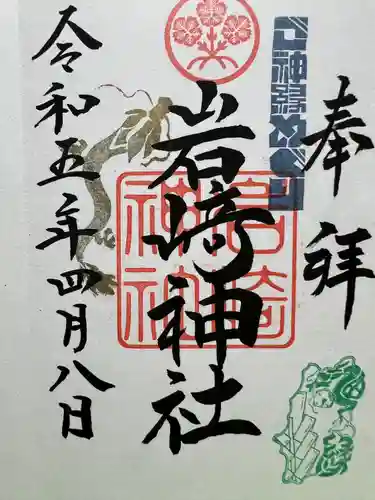 奉拝
ご神縁めぐり
岩崎神社
岩崎神社
令和五年四月八日